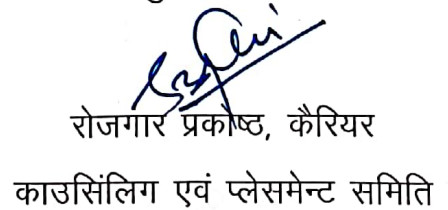 रोजगार प्रकोष्ठ, कैरियर
काउसिंलिग एवं प्लेसमेन्ट समिति